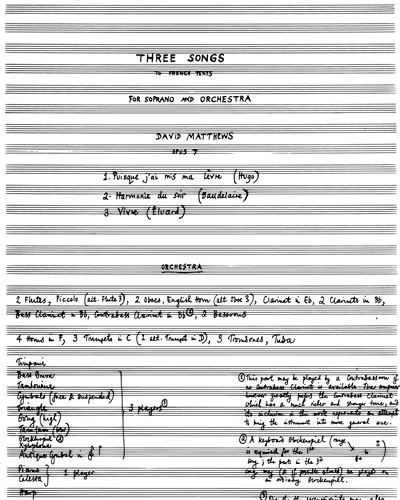 THREE SONGS
TO FRENCH TEXTS
FOR SOPRANO AND ORCHESTRA
DAVID MATTHEWS
OPUS 7
1. Puisque j'ai mis ma lèvre (Hugo)
2. Harmonie du soir (Baudelaire)
3. Vivre (Éluard)
ORCHESTRA
2 Flutes, Piccolo (alt. Flute 3), 2 Oboes, English Horn (alt. Oboe 3), Clarinet in Eb, 2 Clarinets in Bb,
Bass Clarinet in Bb, Contrabass Clarinet in Bb①, 2 Bassoons
4 Horns in F, 3 Trumpets in C (1 alt. Trumpet in D), 3 Trombones, Tuba
Timpani
Bass Drum
Tambourine
Cymbals (fixed & suspended)
Triangle
Gong (high)
Tamtam (low)
Glockenspiel②
Xylophone
Antique Cymbal in
3 players
Piano
Celesta
1 player
Harp
① This part may be played by a Contrabassoon if
no Contrabass Clarinet is available. The composer
however greatly prefers the Contrabass Clarinet
which has a much richer and stronger tone, and
its inclusion in this work represents an attempt
to bring the instrument into more general use.
② A keyboard Glockenspiel (range
is required for the 1st
song; the part in the 3rd
song may (& if possible should) be played on
an ordinary Glockenspiel.